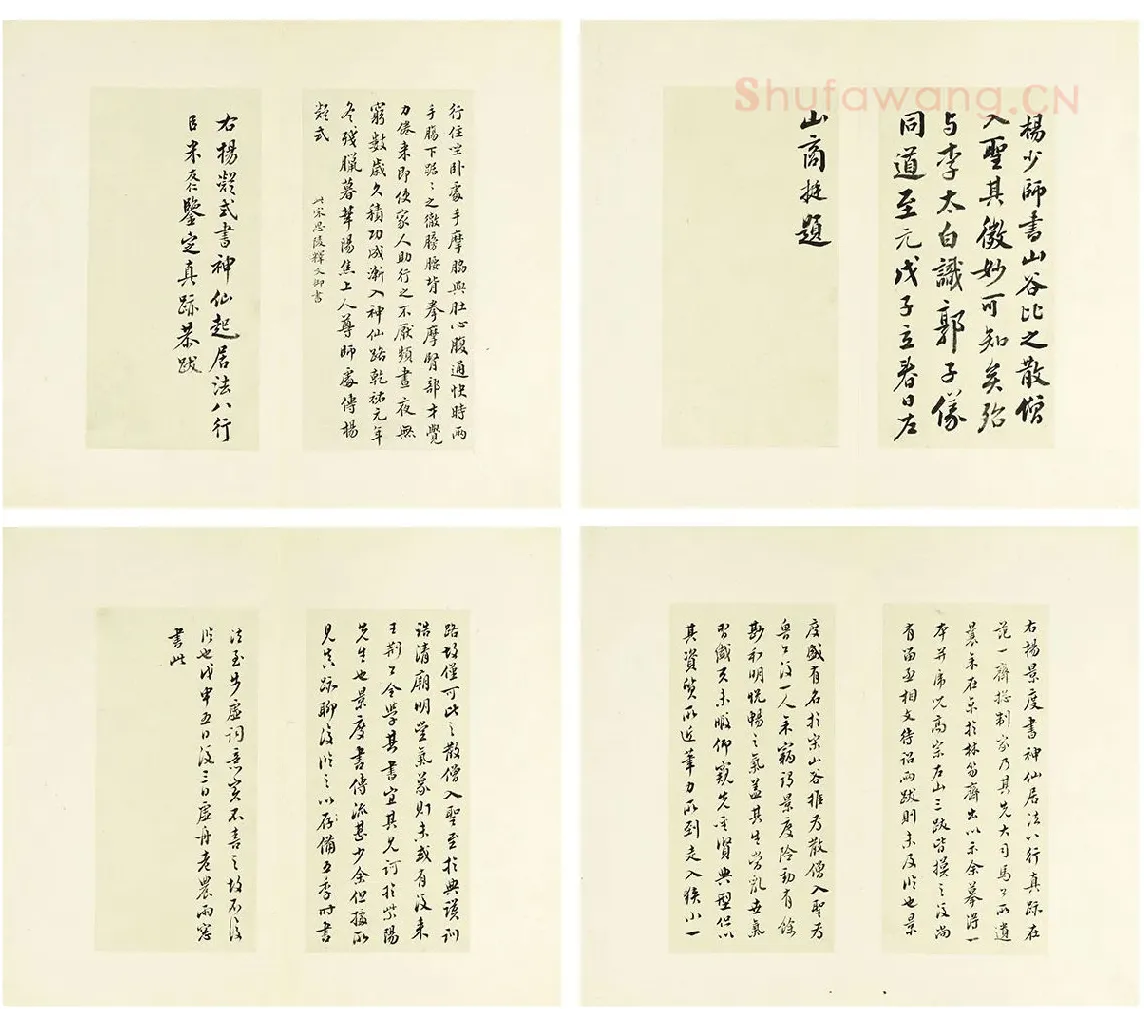 Shufawang.CN
行住坐卧處手摩脇與肚心腹通快時兩
手腸下踞踞之徹膀腰背拳摩腎部才覺
力倦來即使家人助行之不厭頻晝夜無
窮數歲久積功成漸入神仙路乾祐元年
冬残臘暮華陽焦上人尊師處傳楊
凝式
此宋思陵釋文御書
右楊凝式書神仙起居法八行
臣米友仁鑒定真跡恭跋
楊少師書山谷比之散僧
入聖其微妙可知矣殆
与李太白識郭子儀
同道至元戊子立春日左
山商挺題
右楊景度書神仙居法八行真跡在
范一齋總制家乃其先大司馬公所遺
曩来在京于林笏齋出以示余摹得一
本并席以高宗左山三跋皆摸之後尚
有留丞相文待詔兩跋則未及臨也景
度盛有名於宋山谷推为散僧入聖为
魯公後一人年竊得景度冷勁有餘
尠和明悦暢之氣蓋其生當亂世氣
習盛已未暇仰窺先聖賢典型但以
其資質所近筆力所到走入狹小一
路故僅可比之散僧入聖至於典謨訓
誥清廟明堂氣象則未或有後来
王荆公全學其書宜其見訶於紫陽
先生也景度書傳流甚少余但據所
見真跡聊復臨之以存備五季時書
法至步虚詞意実不喜之故不復
臨也戊申五日後三日虚舟老農雨窓
書此